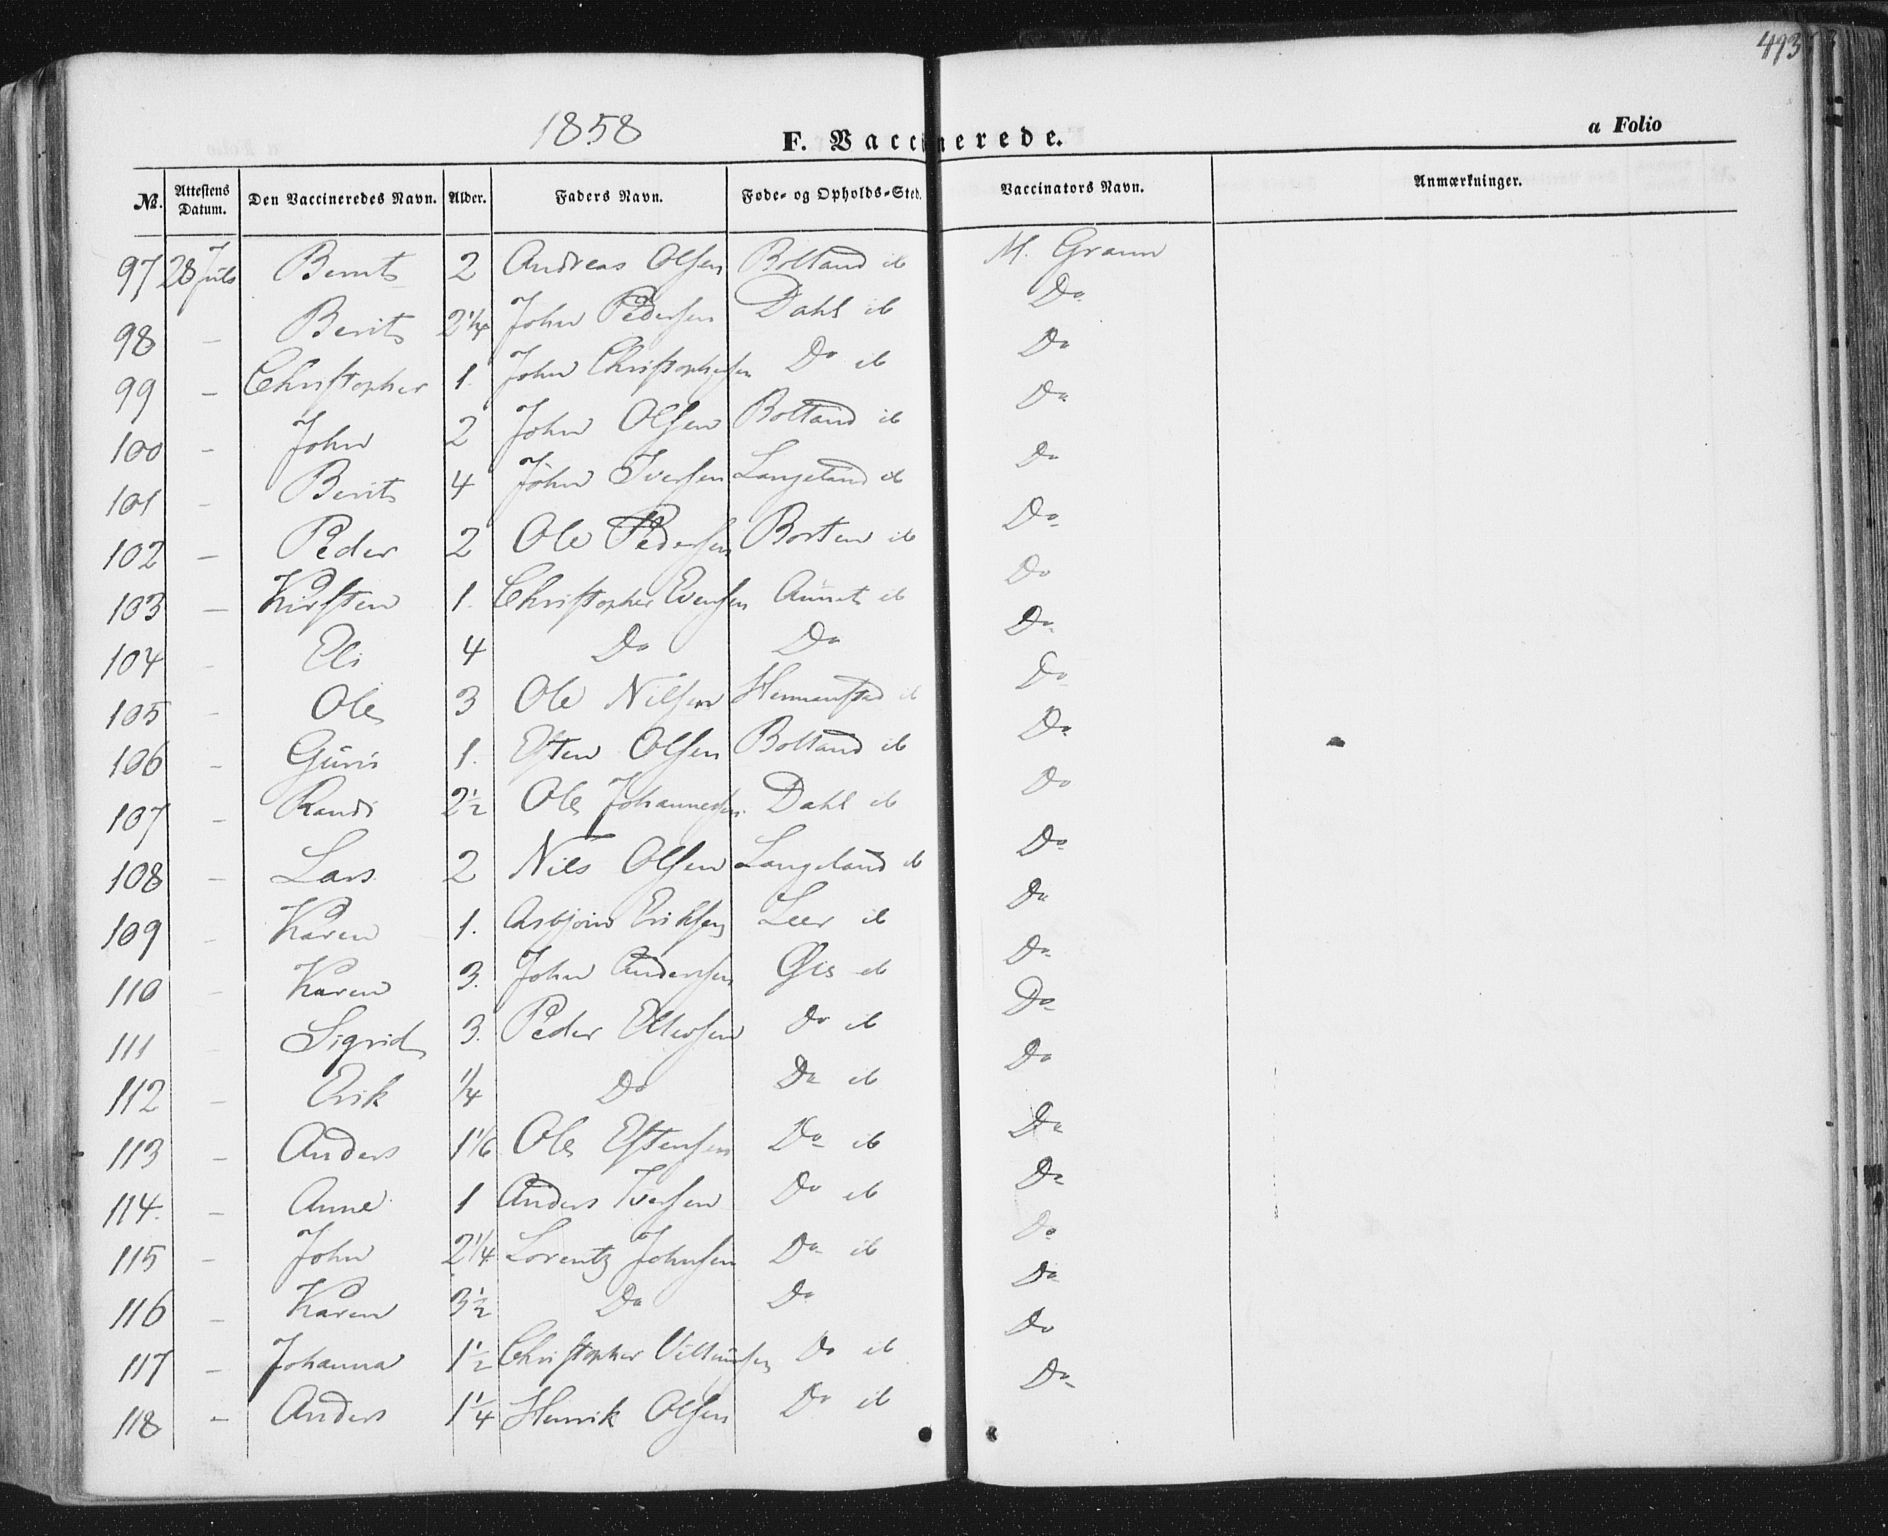 493
1858
F. Vaccinerede.
a Folio
No. Attestens Datum. Den Vaccineredes Navn. Alder. Faders Navn. Føde- og Opholds-Sted. Vaccinators Navn. Anmærkninger.
97 28 Juli Bernt 2 Andreas Olsen Bolland ib M. Graun
98 – Berit 2 1/4 John Pedersen Dahl ib Do
99 – Christopher 1. John Christophersen Do ib Do
100 – John 2 John Olsen Bolland ib Do
101 – Berit 4 John Iversen Langeland ib Do
102 – Peder 2 Ole Pedersen Borten ib Do
103 – Kirsten 1. Christopher Evensen Aunet ib Do
104 – Eli 4 Do Do Do
105 – Ole 3 Ole Nilsen Hermanstad ib Do
106 – Guri 1. Esten Olsen Bolland ib Do
107 – Randi 2 1/2 Ole Johannesen Dahl ib Do
108 – Lars 2 Nils Olsen Langeland ib Do
109 – Karen 1. Asbjørn Eriksen Leer ib Do
110 – Karen 3. John Andersen Øis ib Do
111 – Sigrid 3. Peder Ellevsen Do ib Do
112 – Erik 1/4 Do Do ib Do
113 – Anders 1 1/6 Ole Estensen Do ib Do
114. – Anne 1 Anders Iversen Do ib Do
115 – John 2 1/4 Lorentz Johnsen Do ib Do
116 – Karen 3 1/2 Do Do Do
117 – Johanna 1 1/2 Christopher Do ib Do
118 – Anders 1 1/4 Henrik Olsen Do ib Do